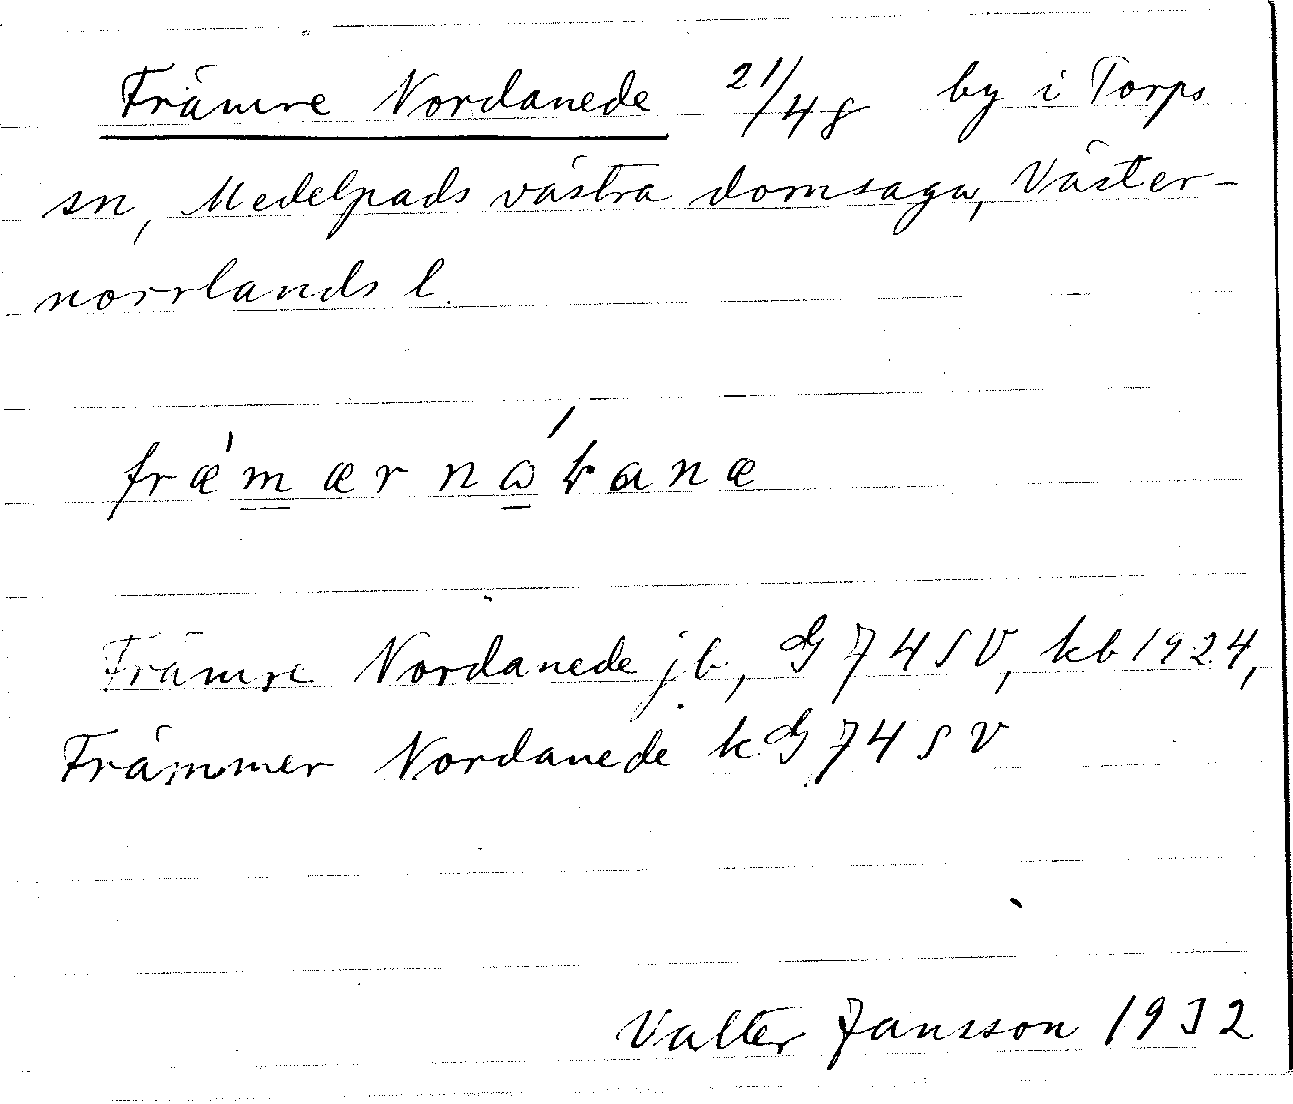 Främre Nordanede 21/48 by i Torps
sn, Medelpads västra domsaga, Väster-
norrlands l.
Främre Nordanede jb, G 74 SV, kb 1924,
Främmer Nordanede k G 74 SV
Valter Jansson 1932